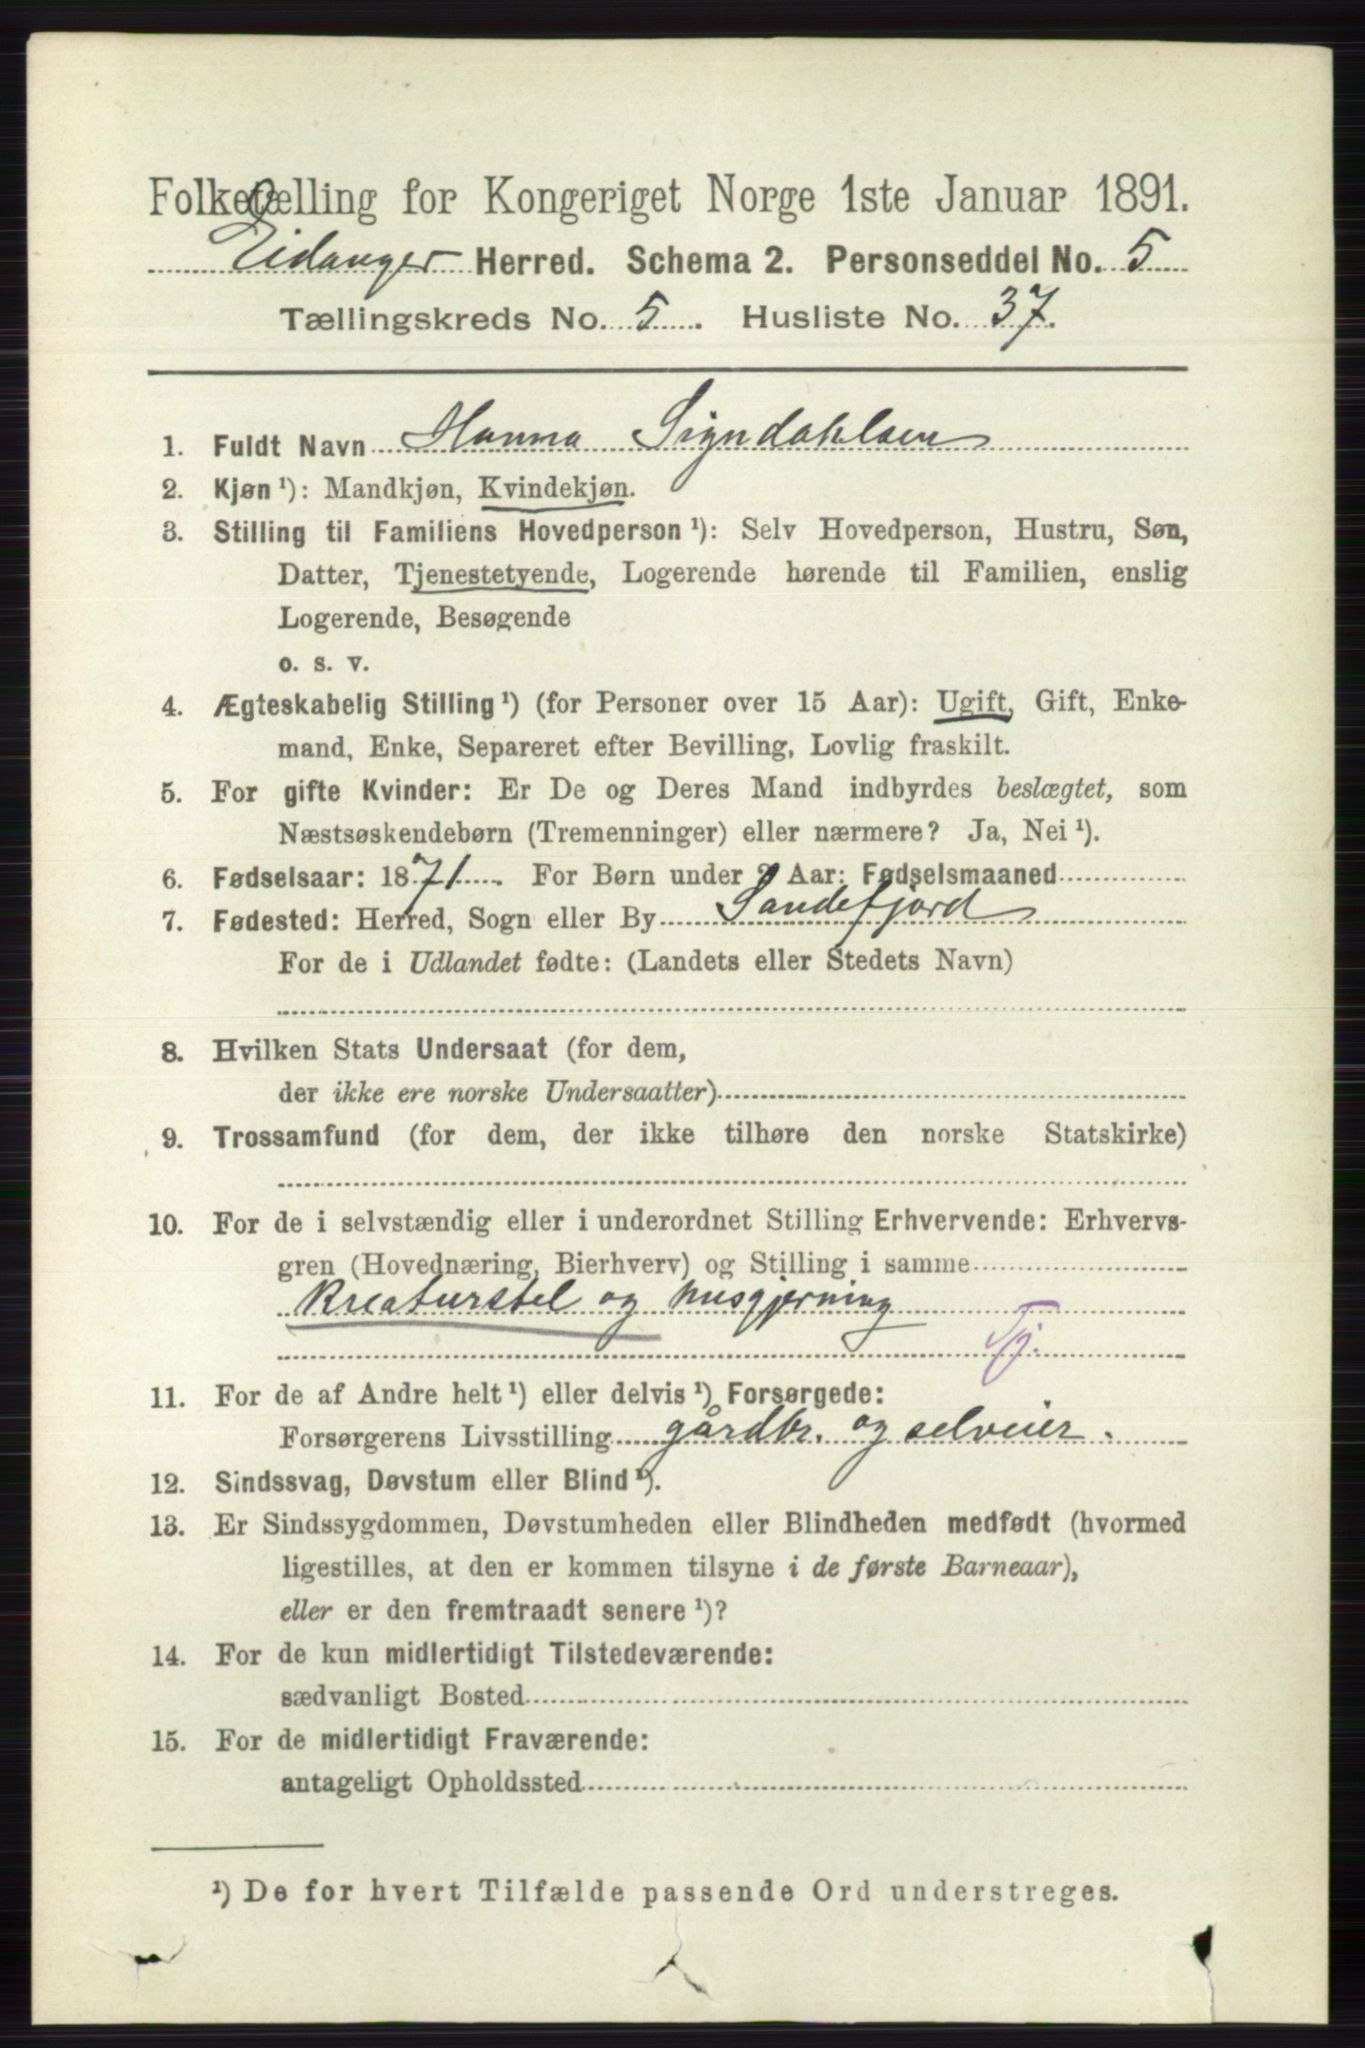 Folketælling for Kongeriget Norge 1ste Januar 1891.
Eidanger Herred. Schema 2. Personseddel No. 5
Tællingskreds No. 5. Husliste No. 37.
1. Fuldt Navn Hanna Signdahlsen
2. Kjøn ¹): Mandkjøn, Kvindekjøn.
3. Stilling til Familiens Hovedperson ¹): Selv Hovedperson, Hustru, Søn,
Datter, Tjenestetyende, Logerende hørende til Familien, enslig
Logerende, Besøgende
o. s. v.
4. Ægteskabelig Stilling ¹) (for Personer over 15 Aar): Ugift, Gift, Enke-
mand, Enke, Separeret efter Bevilling, Lovlig fraskilt.
5. For gifte Kvinder: Er De og Deres Mand indbyrdes beslægtet, som
Næstsøskendebørn (Tremenninger) eller nærmere? Ja, Nei ¹).
6. Fødselsaar: 1871. For Børn under 2 Aar: Fødselsmaaned
7. Fødested: Herred, Sogn eller By Sandefjord
For de i Udlandet fødte: (Landets eller Stedets Navn)
8. Hvilken Stats Undersaat (for dem,
der ikke ere norske Undersaatter)
9. Trossamfund (for dem, der ikke tilhøre den norske Statskirke)
10. For de i selvstændig eller i underordnet Stilling Erhvervende: Erhvervs-
gren (Hovednæring, Bierhverv) og Stilling i samme
Kreaturstel og husgjerning
Tj.
11. For de af Andre helt ¹) eller delvis ¹) Forsørgede:
Forsørgerens Livsstilling gårdbr. og selveier.
12. Sindssvag, Døvstum eller Blind ¹).
13. Er Sindssygdommen, Døvstumheden eller Blindheden medfødt (hvormed
ligestilles, at den er kommen tilsyne i de første Barneaar),
eller er den fremtraadt senere ¹)?
14. For de kun midlertidigt Tilstedeværende:
sædvanligt Bosted
15. For de midlertidigt Fraværende:
antageligt Opholdssted
¹) De for hvert Tilfælde passende Ord understreges.